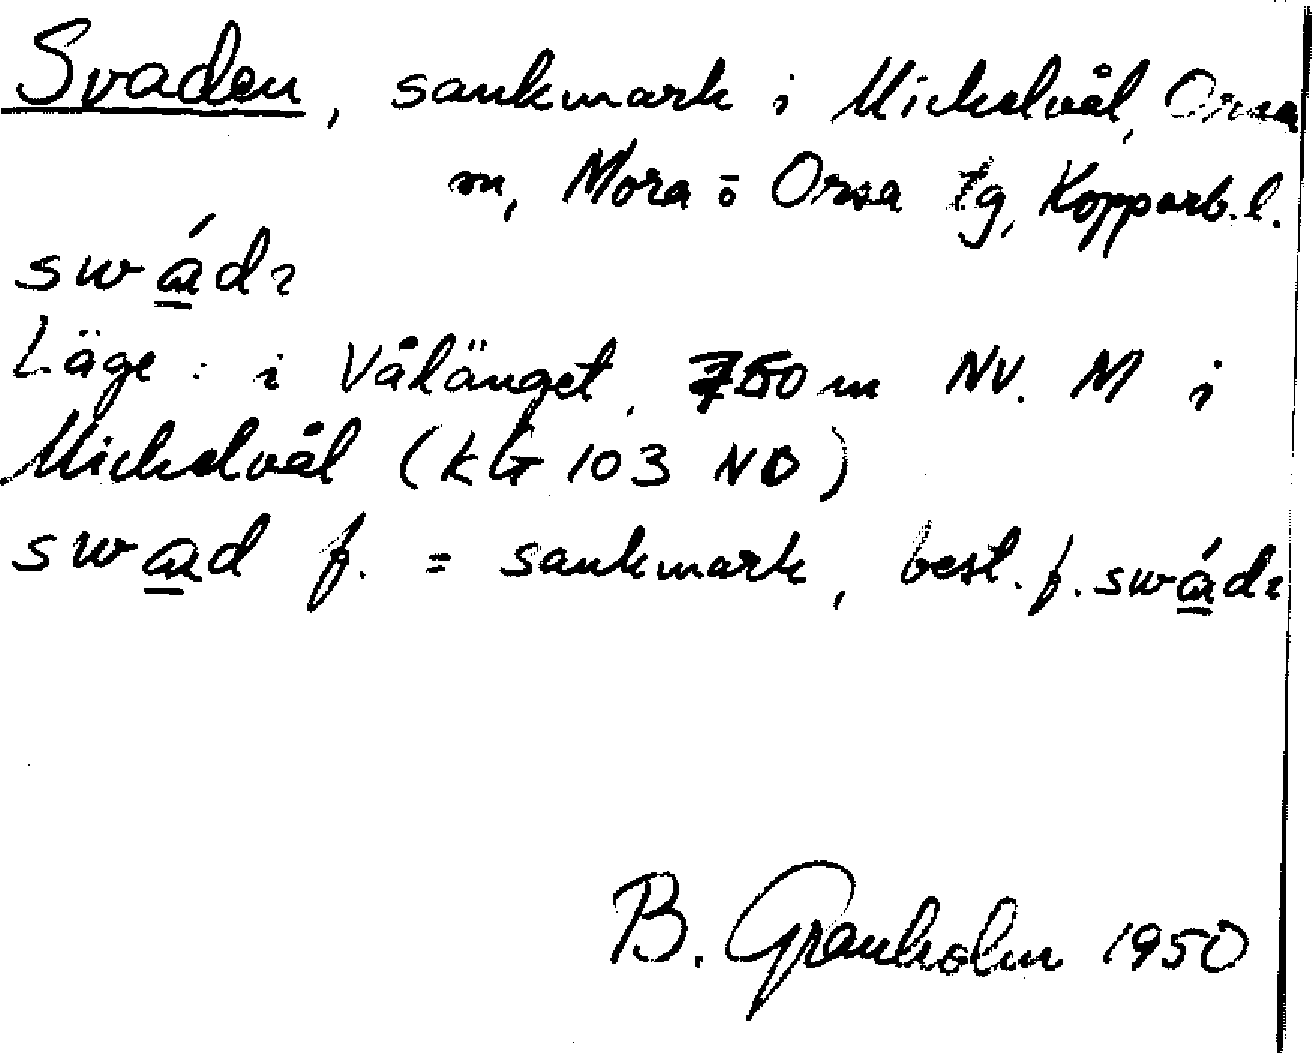 Svaden, sankmark i Mickelvål, Orsa
m, Mora o Orsa tg, Kopparb.l.
swá̱dɿ
Läge: i Vålänget, 750 m NV. M i
Mickelvål (KG 103 NO)
swa̱d f. = sankmark, best. f. swá̱dɿ
B. Granholm 1950